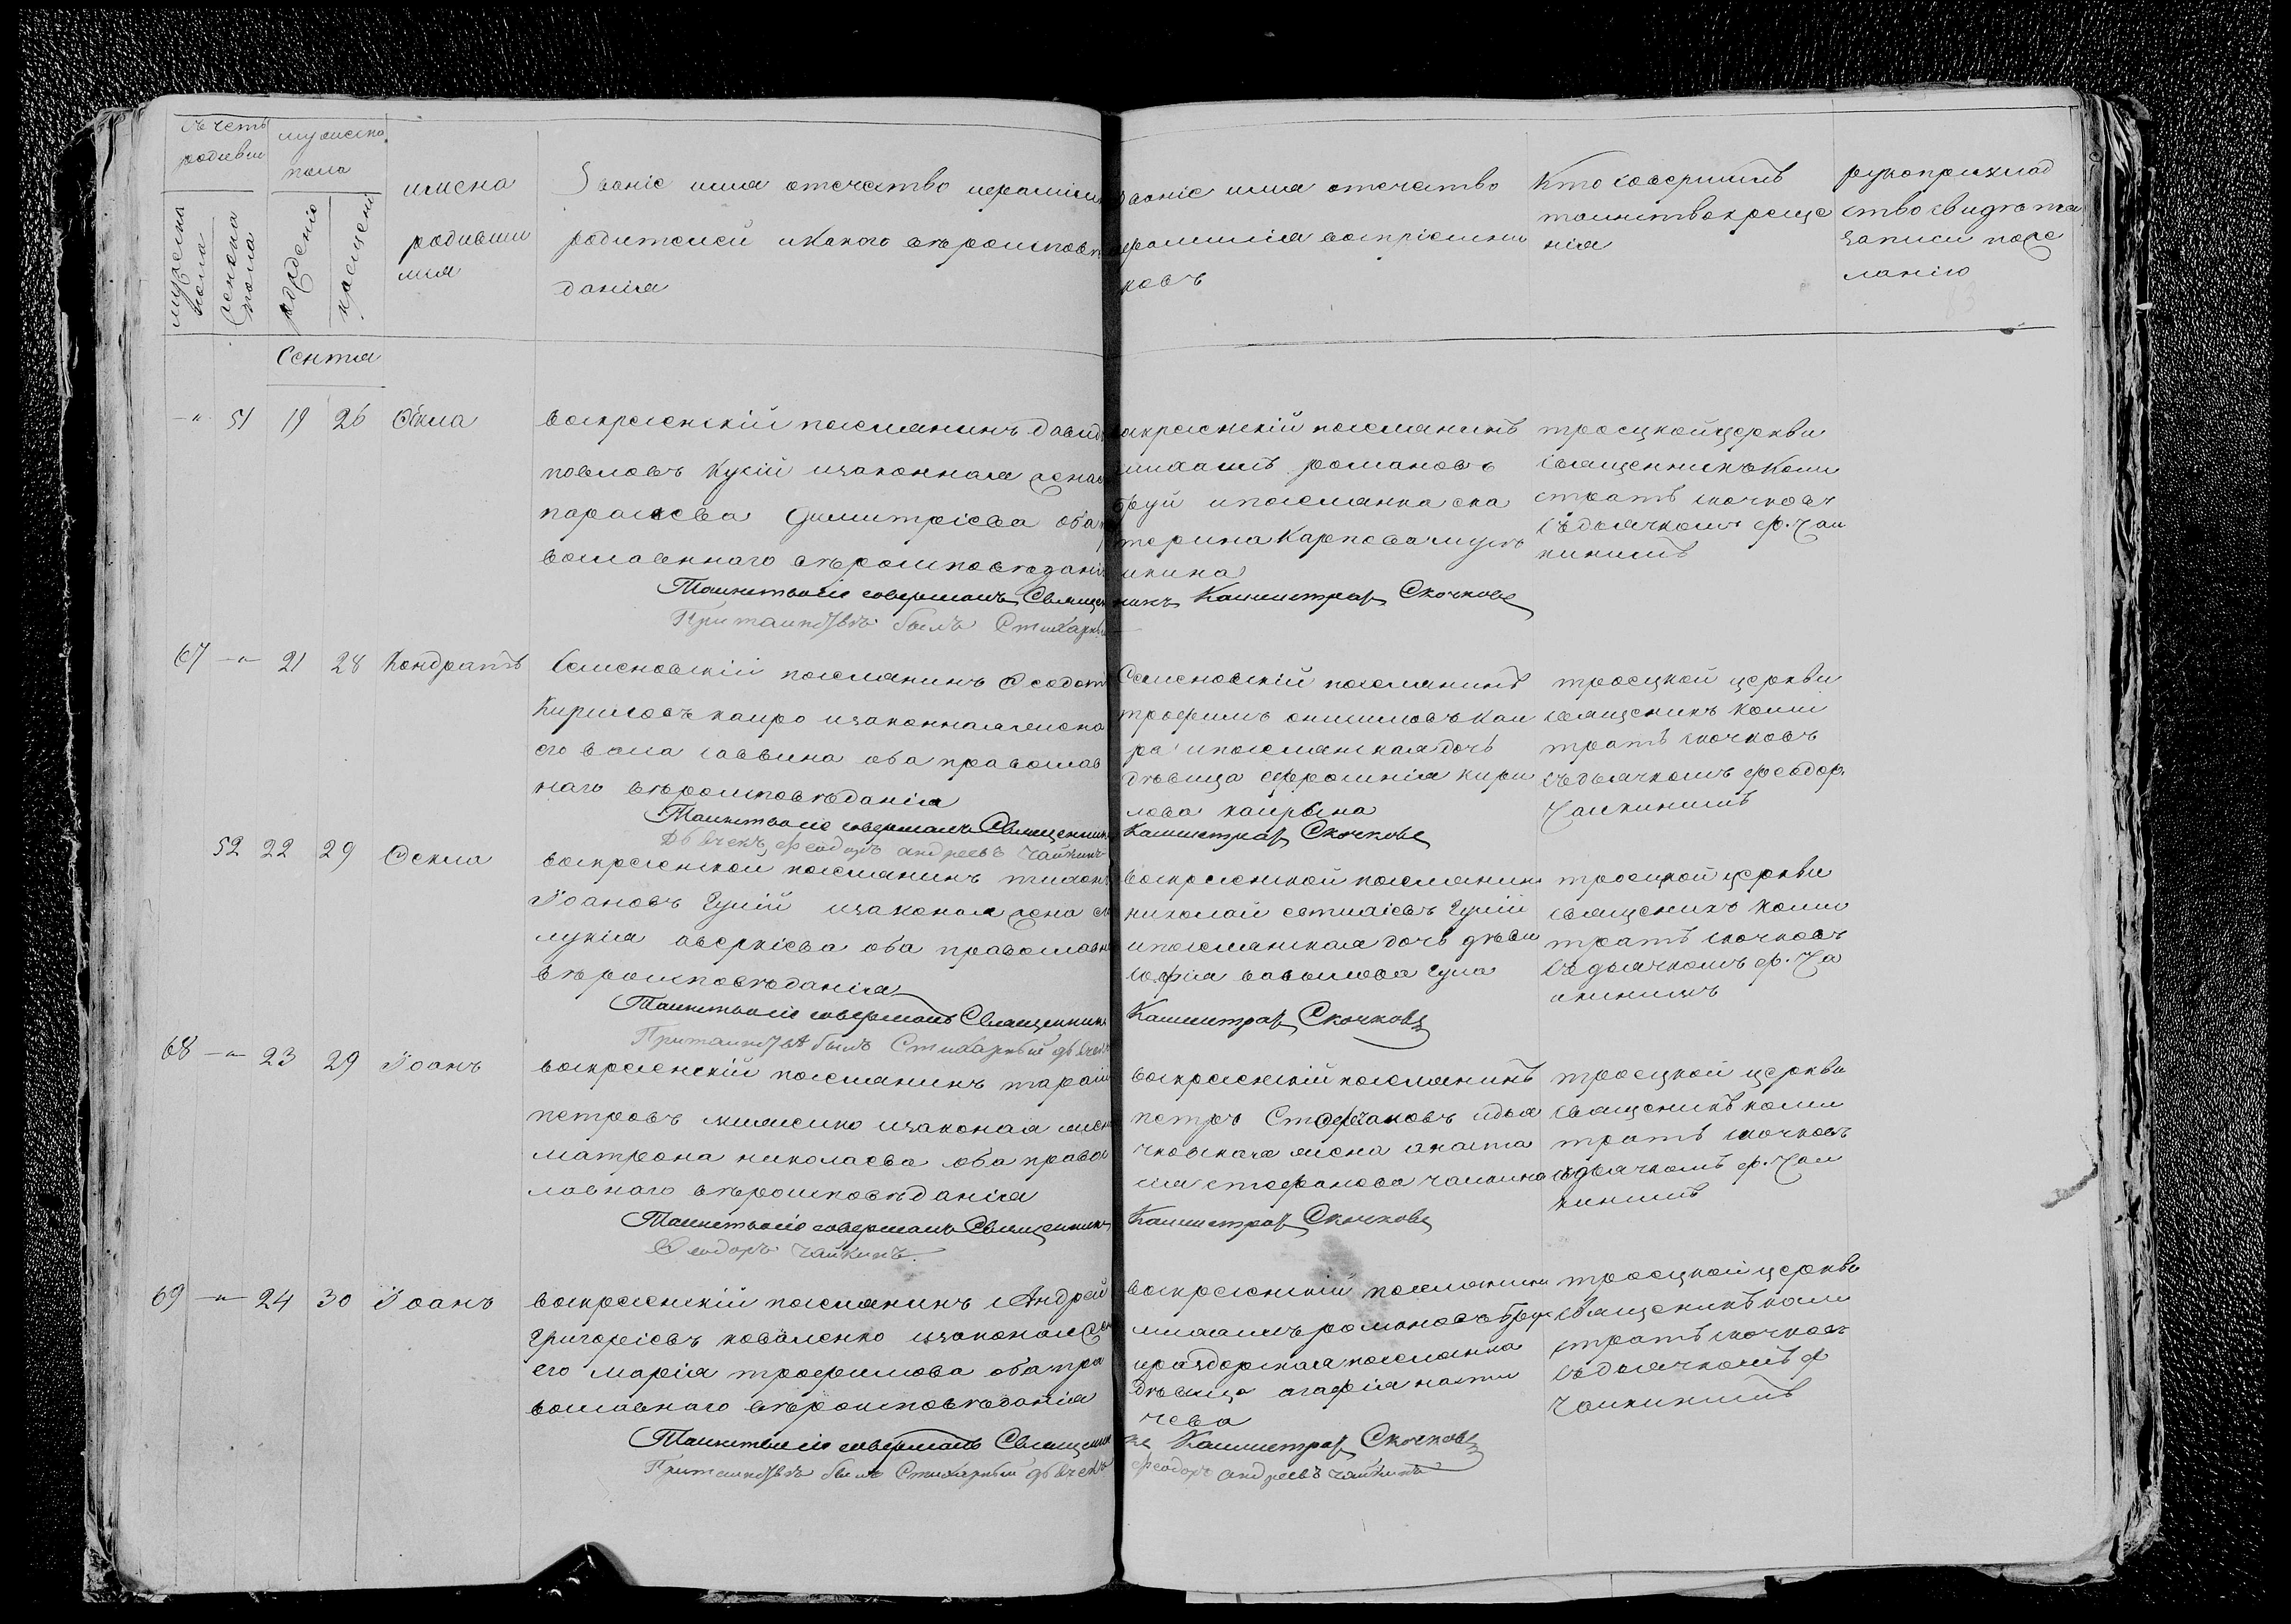 Счетъ родивш
мужеска пола
женска пола
рожденію
крещені
имена
родивши
мся
Званіе имя отечество и фамилія
родителей и какого вѣроисповѣ
данія
Званіе имя отечество
фамилія воспріемни
ковъ
Кто совершилъ
таинство креще
нія
рукоприклад
ство свидѣте
записи поже
ланію
Сентя
-"- 51 19 26 Өекла
воскресенскій поселянинъ Давидъ
павловъ Куцій изаконная жена
параскева Димитріева оба
вославнаго вѣроисповѣданія
воскресенскій поселянинъ
михаилъ романовъ
Буц и поселянка ека
терина Карпова
икина
троецкой церкви
священникъ Кали
стратъ скочковъ
съ дьячкомъ ф. Чаи
кинымъ
Таинство сіе совершалъ Священникъ Каллистратъ Скочковъ
При таинствѣ былъ Стихарный
67 -"- 21 28 Кондратъ
Семеновскій поселянинъ Өеодотъ
Кириловъ каиро изаконная жена
его васса саввина оба православ
наго вѣроисповѣданія
Семеновскій поселянинъ
трофимъ онисимовъ Каи
ра и поселянская дочь
дѣвица ефросинія кири
лова каирына
троецкой церкви
священикъ кали
стратъ скочковъ
съ дьячкомъ феодор.
Чаикинымъ
Таинство сіе совершалъ Священникъ Каллистратъ Скочковъ
Дьячекъ Феодоръ андреевъ Чайкинъ
52 22 29 Өекла
воскресенской поселянинъ тихонъ
Іоановъ Гуцій изаконая жена
лукія аверкіева оба православн
вѣроисповѣданія
воскресенской поселянинъ
николай евтихіевъ Гуцій
и поселянская дочь дѣви
софія вавилова Гуца
троецкой церкви
священикъ кали
стратъ скочковъ
съ дьячкомъ ф. Ча
икинымъ
Таинство сіе совершалъ Священникъ Каллистратъ Скочковъ
При таинствѣ былъ Стихарный дьячекъ
68 -"- 23 29 Іоанъ
воскресенскій поселянинъ тарасій
петровъ изаконая жена
матрона николаева оба право
лавнаго вѣроисповѣданія
воскресенскій поселянинъ
петръ Стефановъ и дья
чковская жена анаста
сія стефанова чаикина
троецкой церкви
священикъ кали
стратъ скочковъ
съ дьячкомъ ф. Чаи
кинымъ
Таинство сіе совершалъ Священникъ Каллистратъ Скочковъ
Өеодоръ Чайкинъ.
69 -"- 24 30 Іоанъ
воскресенскій поселянинъ Андрей
Григоріевъ коваленко изаконая жена
его марія трофимова оба пра
вославнаго вѣроисповѣданія
воскресенскій поселянинъ
михаилъ романовъ Буц
и роздорская поселянка
дѣвица агафія
чева
троецкой церкви
священикъ кали
стратъ скочковъ
съ дьячкомъ ф
Чаикинымъ
Таинство сіе совершалъ Священникъ Каллистратъ Скочковъ
При таинствѣ былъ Стихарный дьячекъ Феодоръ андреевъ Чайкинъ